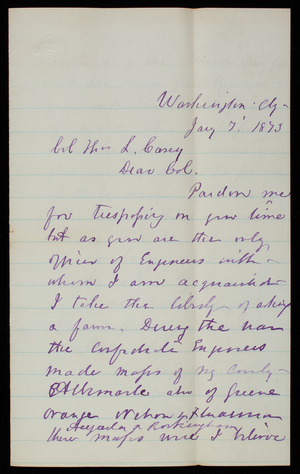 Washington City
Jany 7' 1873
Col Thos L. Casey
Dear Col.
Pardon me
for trespassing on your time
but as you are the only
Officer of Engineers with
whom I am acquainted
I take the liberty of asking
a favor. During the war
the Confederate Engineers
made maps of my County
Albemarle also of Greene
Orange Nelson & Fluvanna
Augusta & Rockingham
these maps were I believe